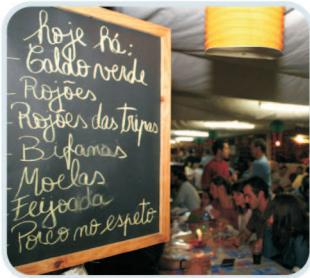 hoje há:
- Caldo verde
- Rojões
- Rojões das tripas
- Bifanas
- Moelas
- Feijoada
- Porco no espeto